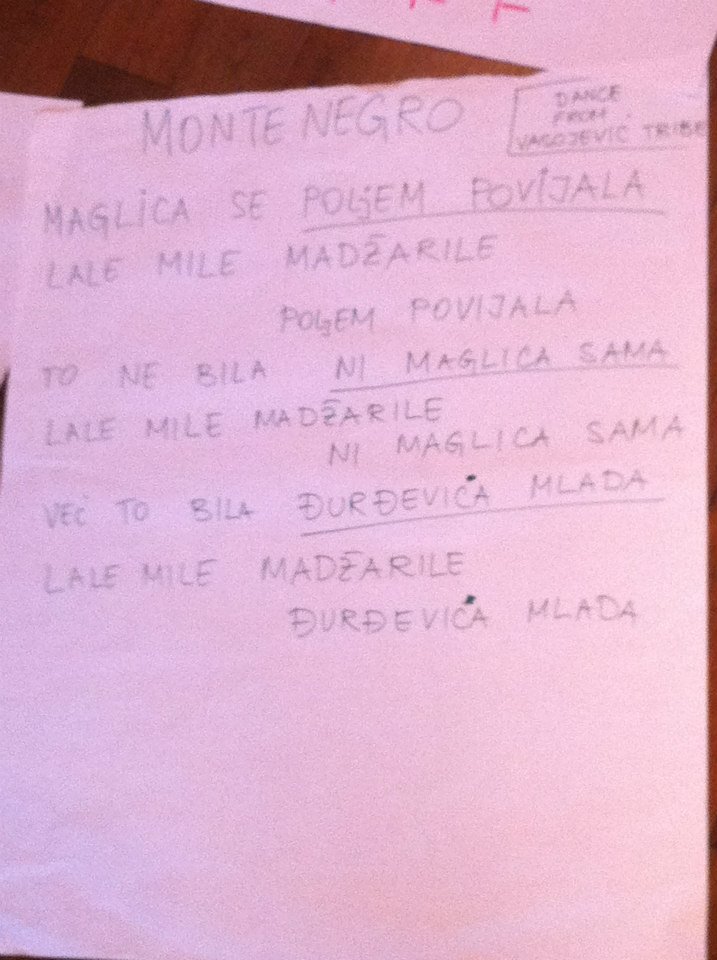 MONTE NEGRO
DANCE
FROM
VASOJEVIC TRIBE
MAGLICA SE POLJEM POVIJALA
LALE MILE MADŽARILE
POLJEM POVIJALA
TO NE BILA NI MAGLICA SAMA
LALE MILE MADŽARILE
NI MAGLICA SAMA
VEĆ TO BILA ĐURĐEVIĆA MLADA
LALE MILE MADŽARILE
ĐURĐEVIĆA MLADA